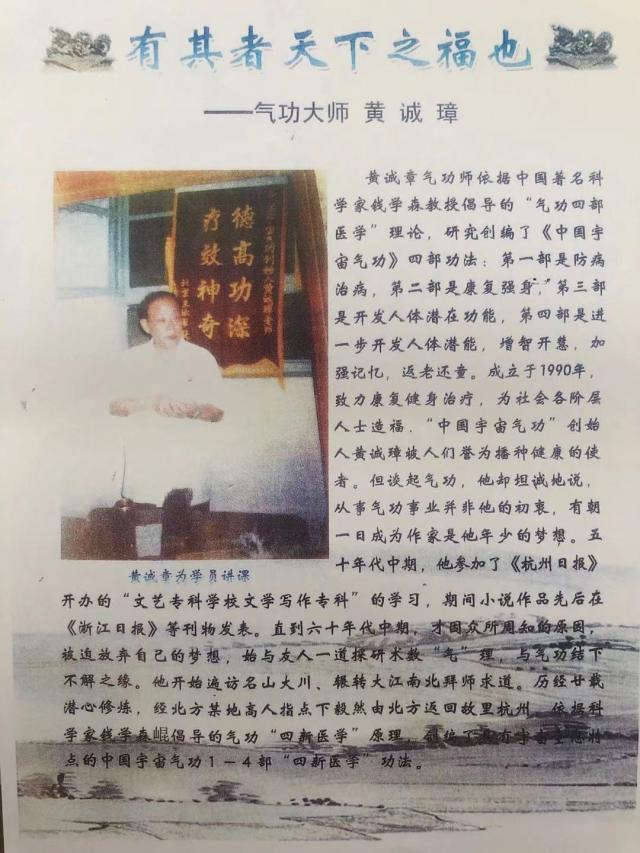 有其者天下之福也
——气功大师 黄 诚 璋
德高功深
疗效神奇
黄诚章为学员讲课
黄诚章气功师依据中国著名科
学家钱学森教授倡导的“气功四部
医学”理论，研究创编了《中国宇
宙气功》四部功法：第一部是防病
治病，第二部是康复强身，第三部
是开发人体潜在功能，第四部是进
一步开发人体潜能，增智开慧，加
强记忆，返老还童。成立于1990年，
致力康复健身治疗，为社会各阶层
人士造福．“中国宇宙气功”创始
人黄诚璋被人们誉为播种健康的使
者。但谈起气功，他却坦诚地说，
从事气功事业并非他的初衷，有朝
一日成为作家是他年少的梦想。五
十年代中期，他参加了《杭州日报》
开办的“文艺专科学校文学写作专科”的学习，期间小说作品先后在
《浙江日报》等刊物发表。直到六十年代中期，才因众所周知的原因，
被迫放弃自己的梦想，始与友人一道探研术数“气”理，与气功结下
不解之缘。他开始遍访名山大川、辗转大江南北拜师求道。历经廿载
潜心修炼，经北方某地高人指点下毅然由北方返回故里杭州，依据科
学家钱学森崐倡导的气功“四新医学”原理，创编了具有宇宙特
点的中国宇宙气功1－4部“四新医学”功法。